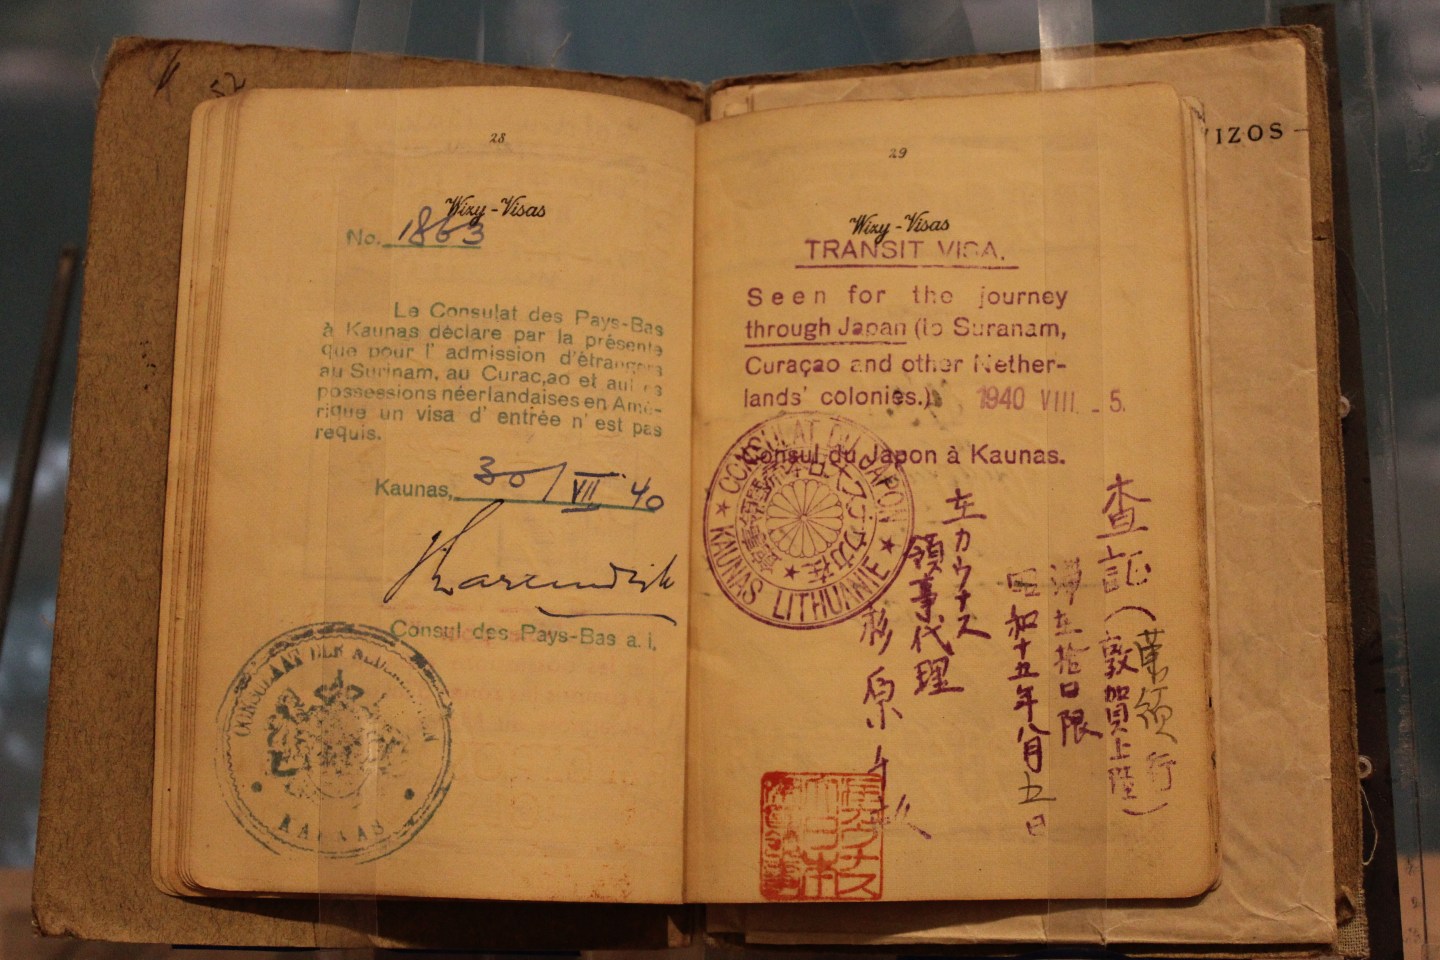 52
28
Wizy - Visas
No. 1863
Le Consulat des Pays-Bas
à Kaunas déclare par la présente
que pour l' admission d'étrangers
au Surinam, au Curac,ao et autres
possessions néerlandaises en Amé-
rique un visa d' entrée n' est pas
requis.
Kaunas, 30/VII 40
Consul des Pays-Bas a. i.
CONSULAAT DER NEDERLANDEN
KAUNAS
29
Wizy - Visas
TRANSIT VISA.
Seen for the journey
through Japan (to Suranam,
Curaçao and other Nether-
lands' colonies.) 1940 VIII. - 5.
Consul du Japon à Kaunas.
CONSULAT DU JAPON
KAUNAS LITHUANIE
査証(敦賀上陸)
蘭領行
滞在拾日限
昭和十五年八月五日
在カウナス
領事代理
杉原千畝
VIZOS